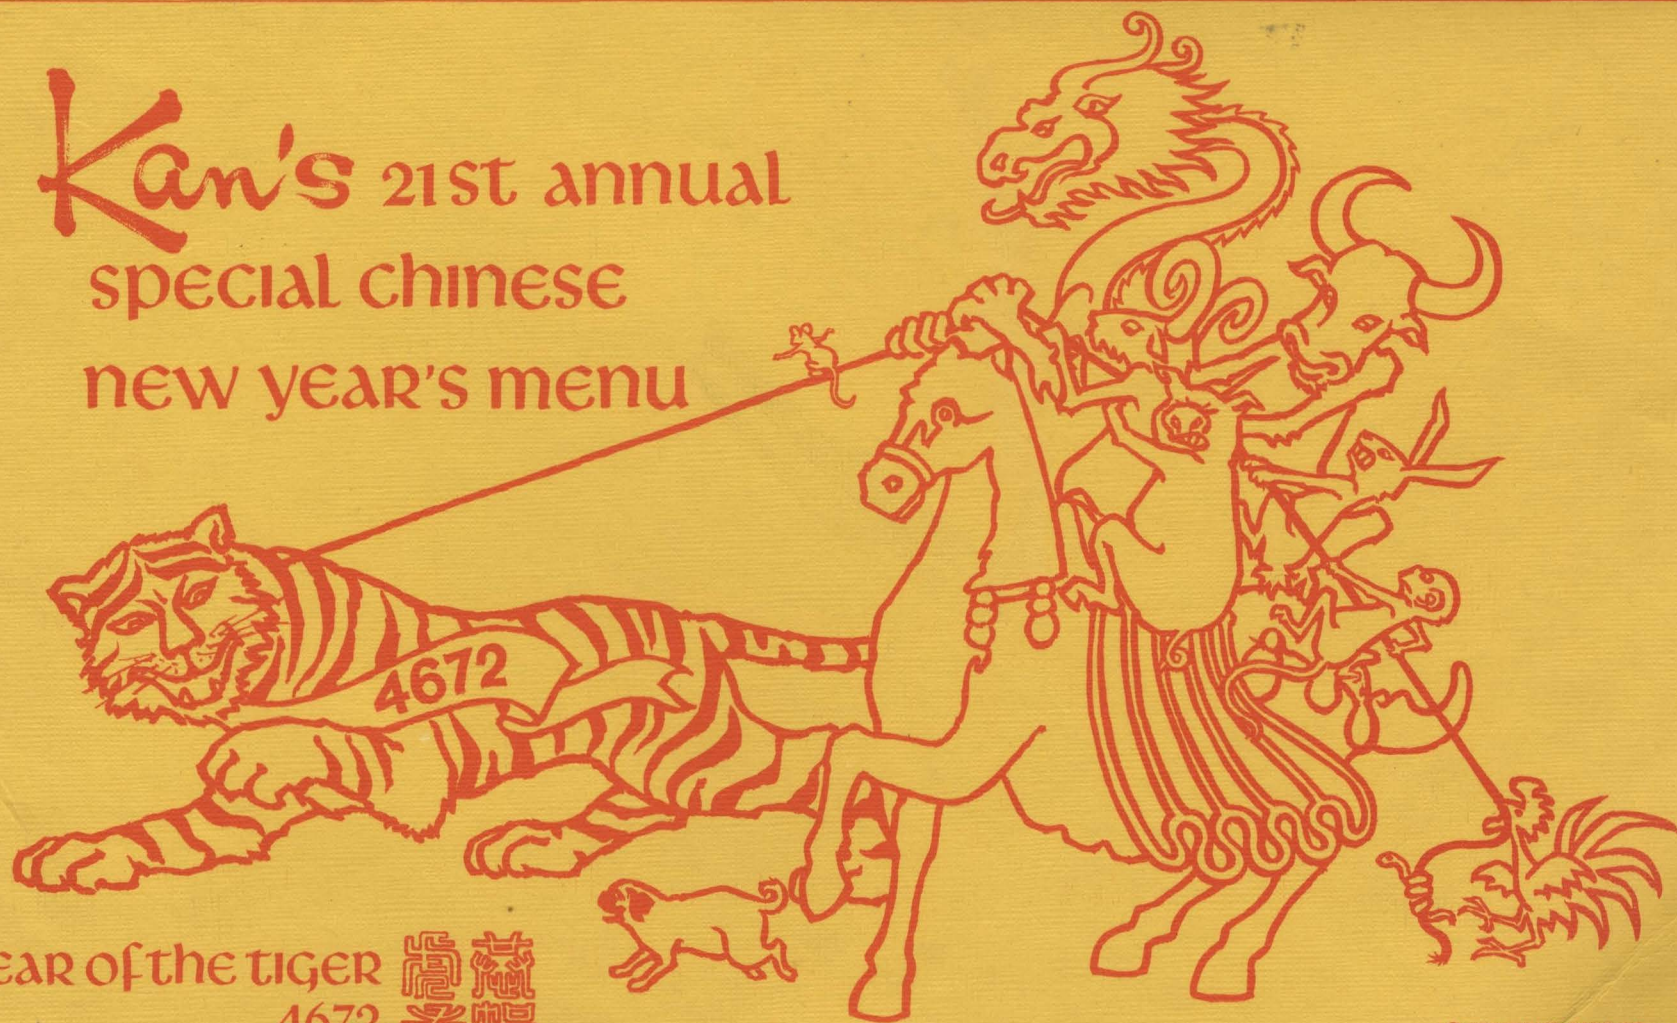 Kan's 21st annual
special chinese
new year's menu
4672
ear of the tiger
4672